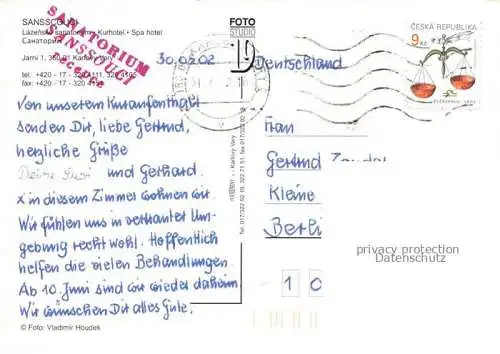 SANSSOUCI
Lázeňské sanatorium • Kurhotel • Spa hotel
Санаторий
Jarní 1, 360 01 Karlovy Vary
tel: +420 - 17 - 320 4111, 320 4105
fax: +420 - 17 - 320
SANATORIUM
SANSSOUCI
recepce
FOTO
STUDIO
30.05.02
Deutschland
ČESKÁ REPUBLIKA
9 Kč
Von unserem Kuraufenthalt
senden Dir, liebe Gertrud,
herzliche Grüße
Deine und Gerhard.
x in diesem Zimmer wohnen wir.
Wir fühlen uns in vertrauter Um-
gebung recht wohl. Hoffentlich
helfen die vielen Behandlungen
Ab 10. Juni sind wir wieder daheim
Wir wünschen Dir alles Gute.
Karlovy Vary
Frau
Gertrud
Kleine
Berlin
privacy protection
Datenschutz
1 0
© Foto: Vladimír Houdek